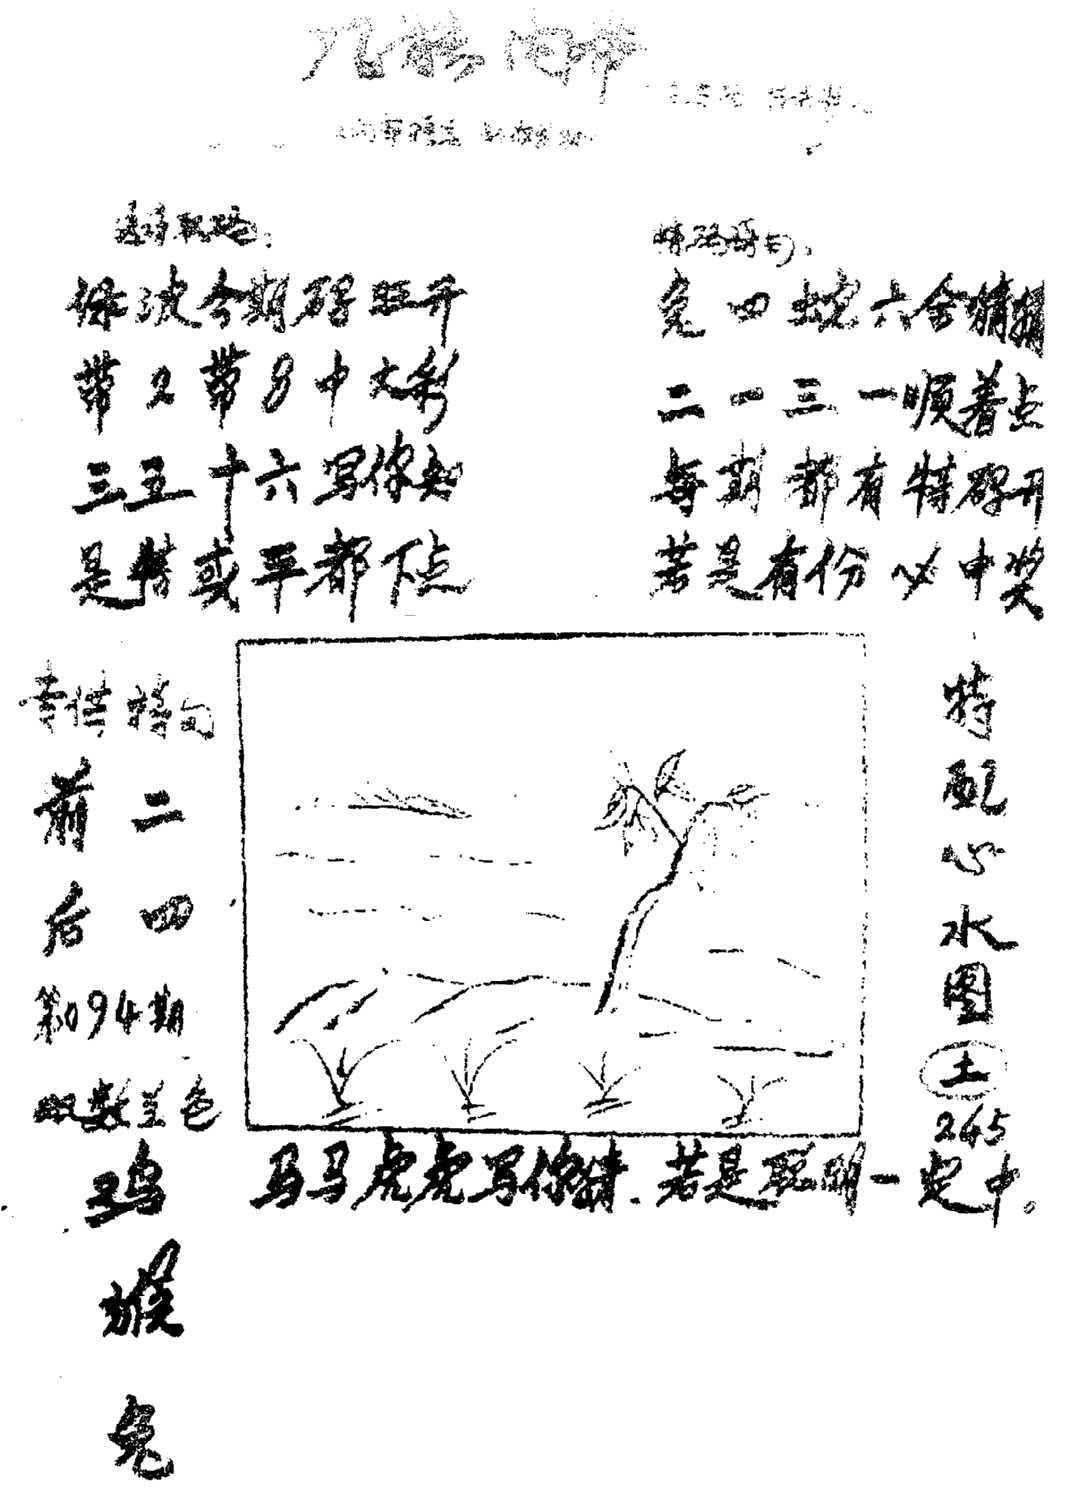 九龙内带
送码取码
绿波今期码旺开
带2带8中大彩
三五十六写你知
是特或平都下点
精码诗句
兔四蛇六会精猜
二一三一顺着点
每期都有特码开
若是有份必中奖
特句
前二
后四
第094期
双数兰色
鸡
猴
兔
特配心水图
土
245
马马虎虎写你猜.若是聪明一定中。